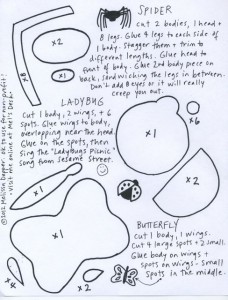 SPIDER
Cut 2 bodies, 1 head +
8 legs. Glue 4 legs to each side of
1 body. Stagger them + trim to
different lengths. Glue head to
front of body. Glue 2nd body piece on
back, sandwiching the legs in between.
Don't add 8 eyes or it will really
creep you out.
x8
x2
x1
LADYBUG
Cut 1 body, 2 wings, + 6
spots. Glue wings to body,
overlapping near the head.
Glue on the spots, then
sing the "Ladybugs Picnic"
song from Sesame Street.
x1
x6
x2
x1
x1
x4
x2
BUTTERFLY
Cut 1 body, 1 wings.
Cut 4 large spots + 2 small.
Glue body on wings +
spots on wings - small
spots in the middle.
ok to use for non-profit!
visit me online at Mel's Desk